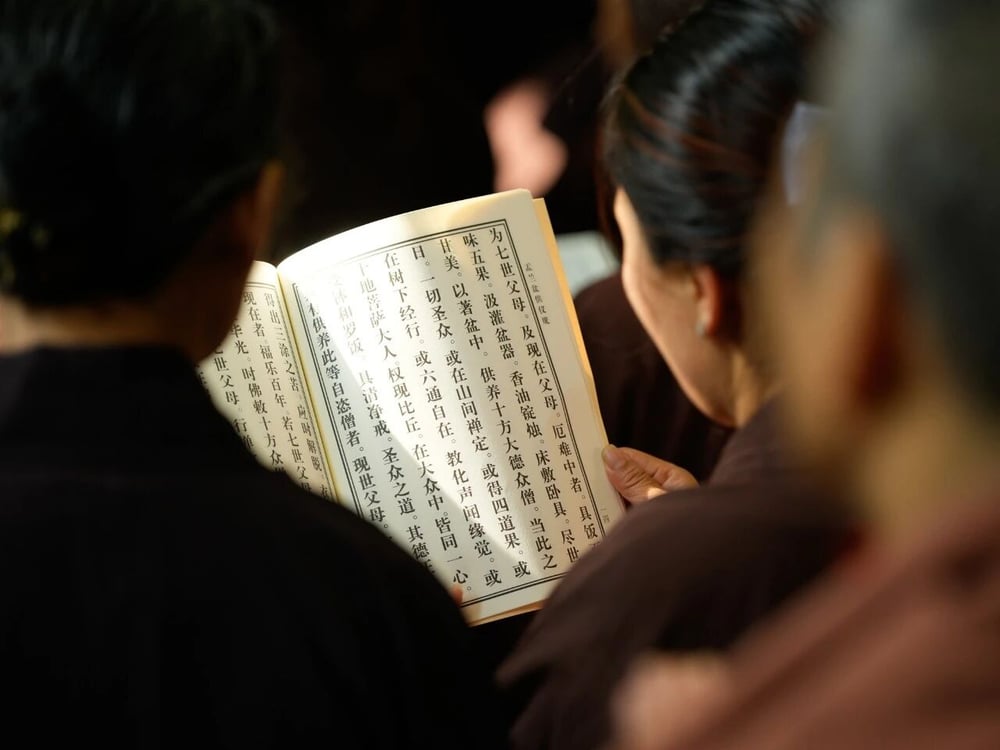 盂兰盆供仪规
为七世父母。及现在父母。厄难中者。具饭
味五果。汲灌盆器。香油锭烛。床敷卧具。尽世
甘美。以著盆中。供养十方大德众僧。当此之
日。一切圣众。或在山间禅定。或得四道果。或
在树下经行。或六通自在。教化声闻缘觉。或
十地菩萨大人。权现比丘。在大众中。皆同一心。
和罗饭。具清净戒。圣众之道。其德汪
有供养此等自恣僧者。现世父母。
得出三涂之苦。应时解脱。
现在者。福乐百年。若七世父
华光。时佛敕十方众
世父母。行禅